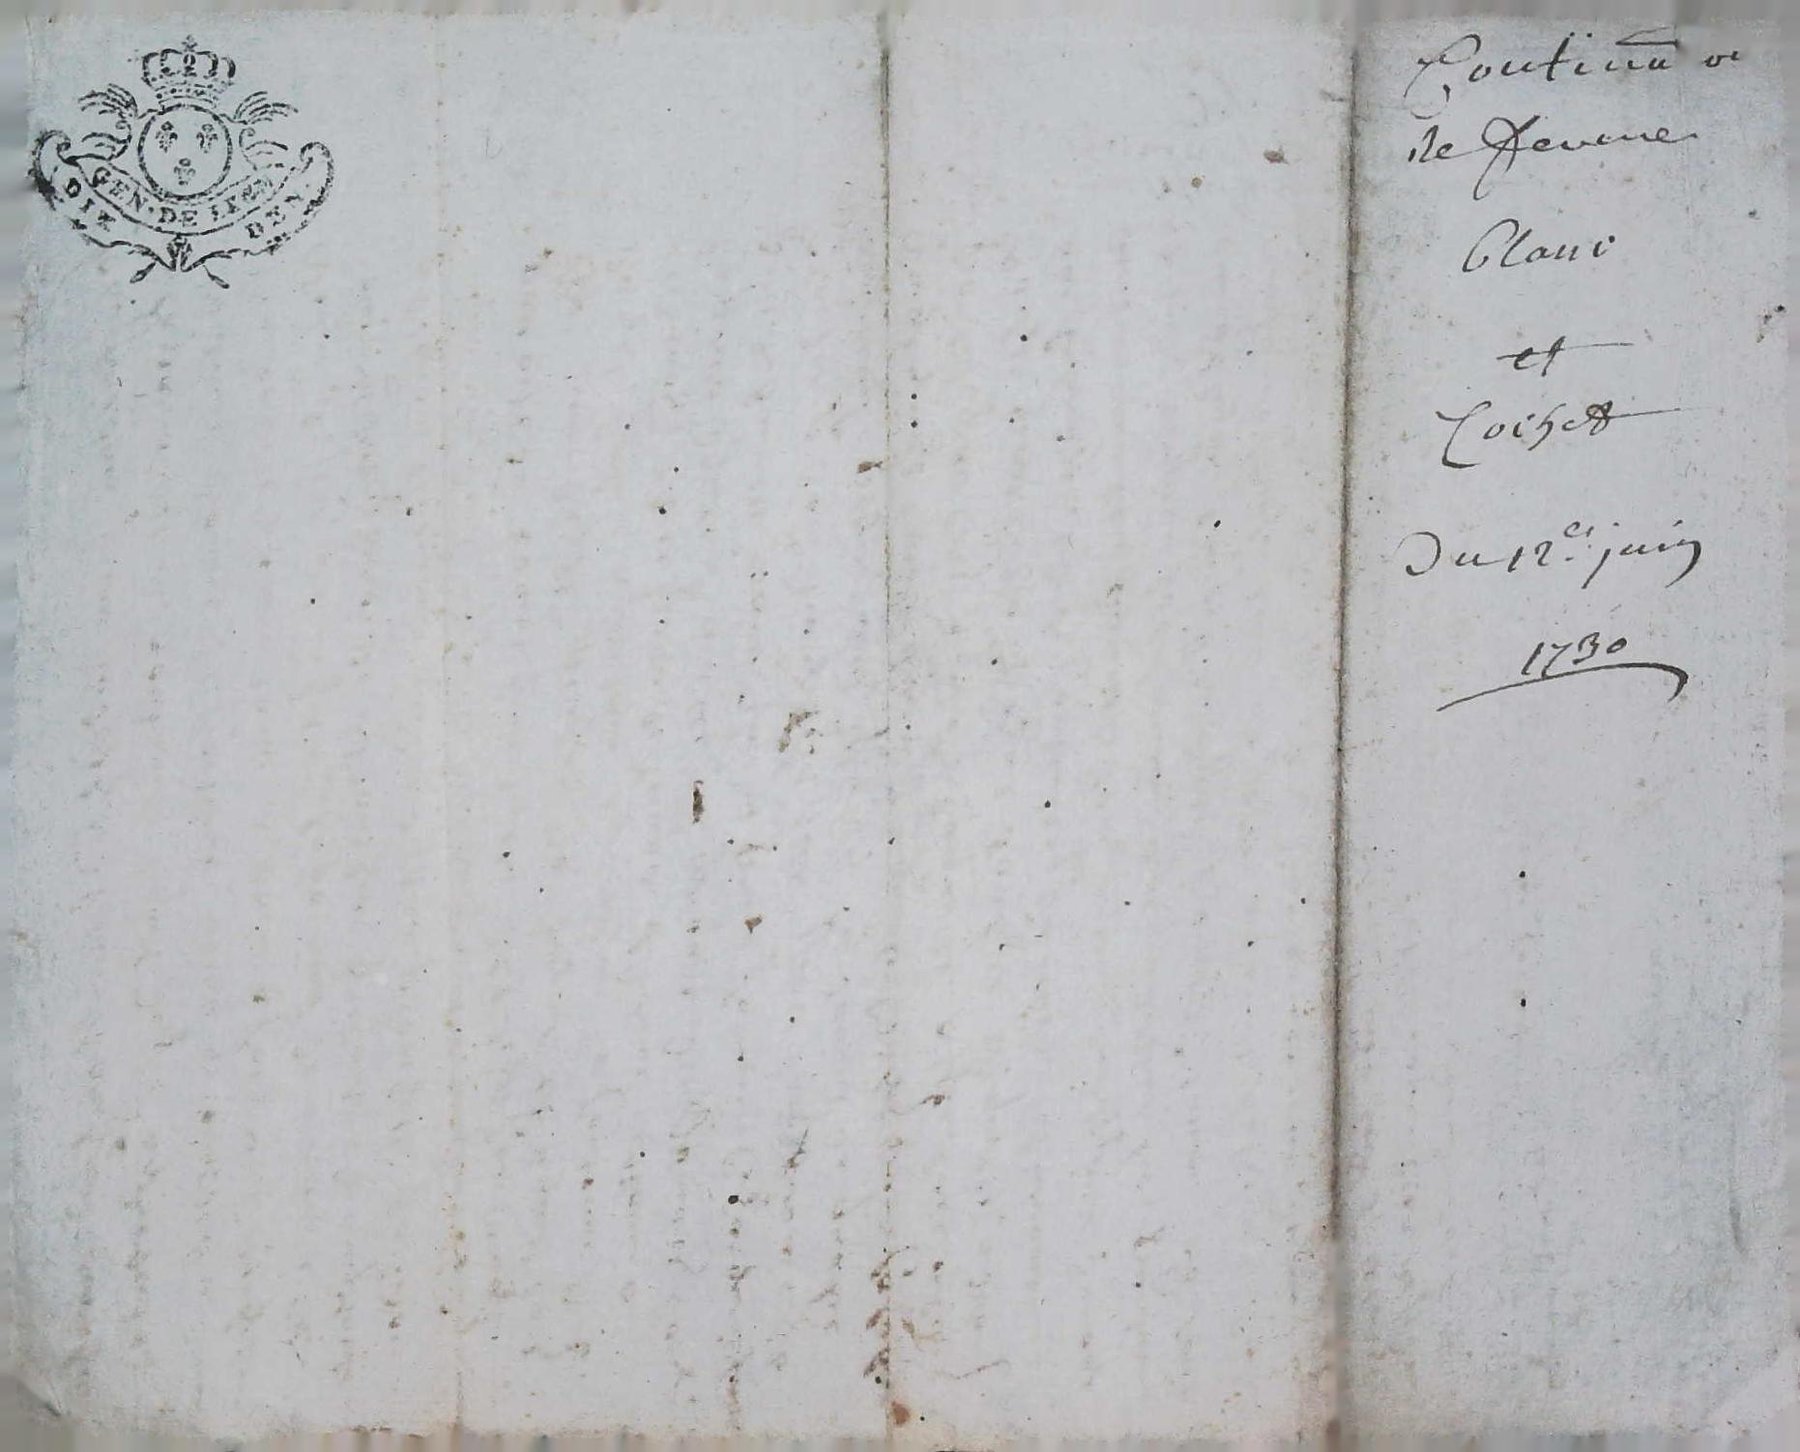 GEN · DE LION
DIX DEN.
Continuā on
de ferme
Blanc
et
Coihet
Du 12e juin
1730